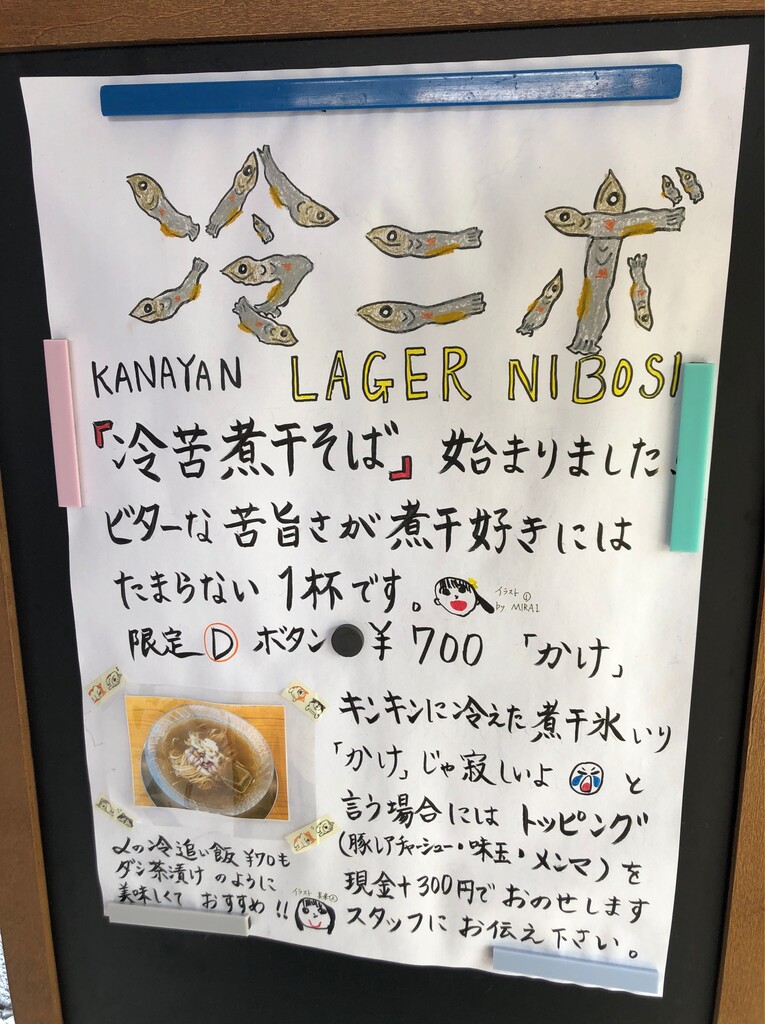 冷ニボ
KANAYAN LAGER NIBOSI
『冷苦煮干そば』始まりました
ビターな苦旨さが煮干好きには
たまらない1杯です。
イラスト①
by MIRAI
限定 Ⓓ ボタン ¥700 「かけ」
キンキンに冷えた煮干氷いり
「かけ」じゃ寂しいよ と
言う場合には トッピング
(豚レアチャーシュー・味玉・メンマ)を
現金+300円でおのせします
スタッフに お伝え下さい。
〆の冷追い飯 ¥70も
ダシ茶漬けのように
美味しくて おすすめ!!
イラスト